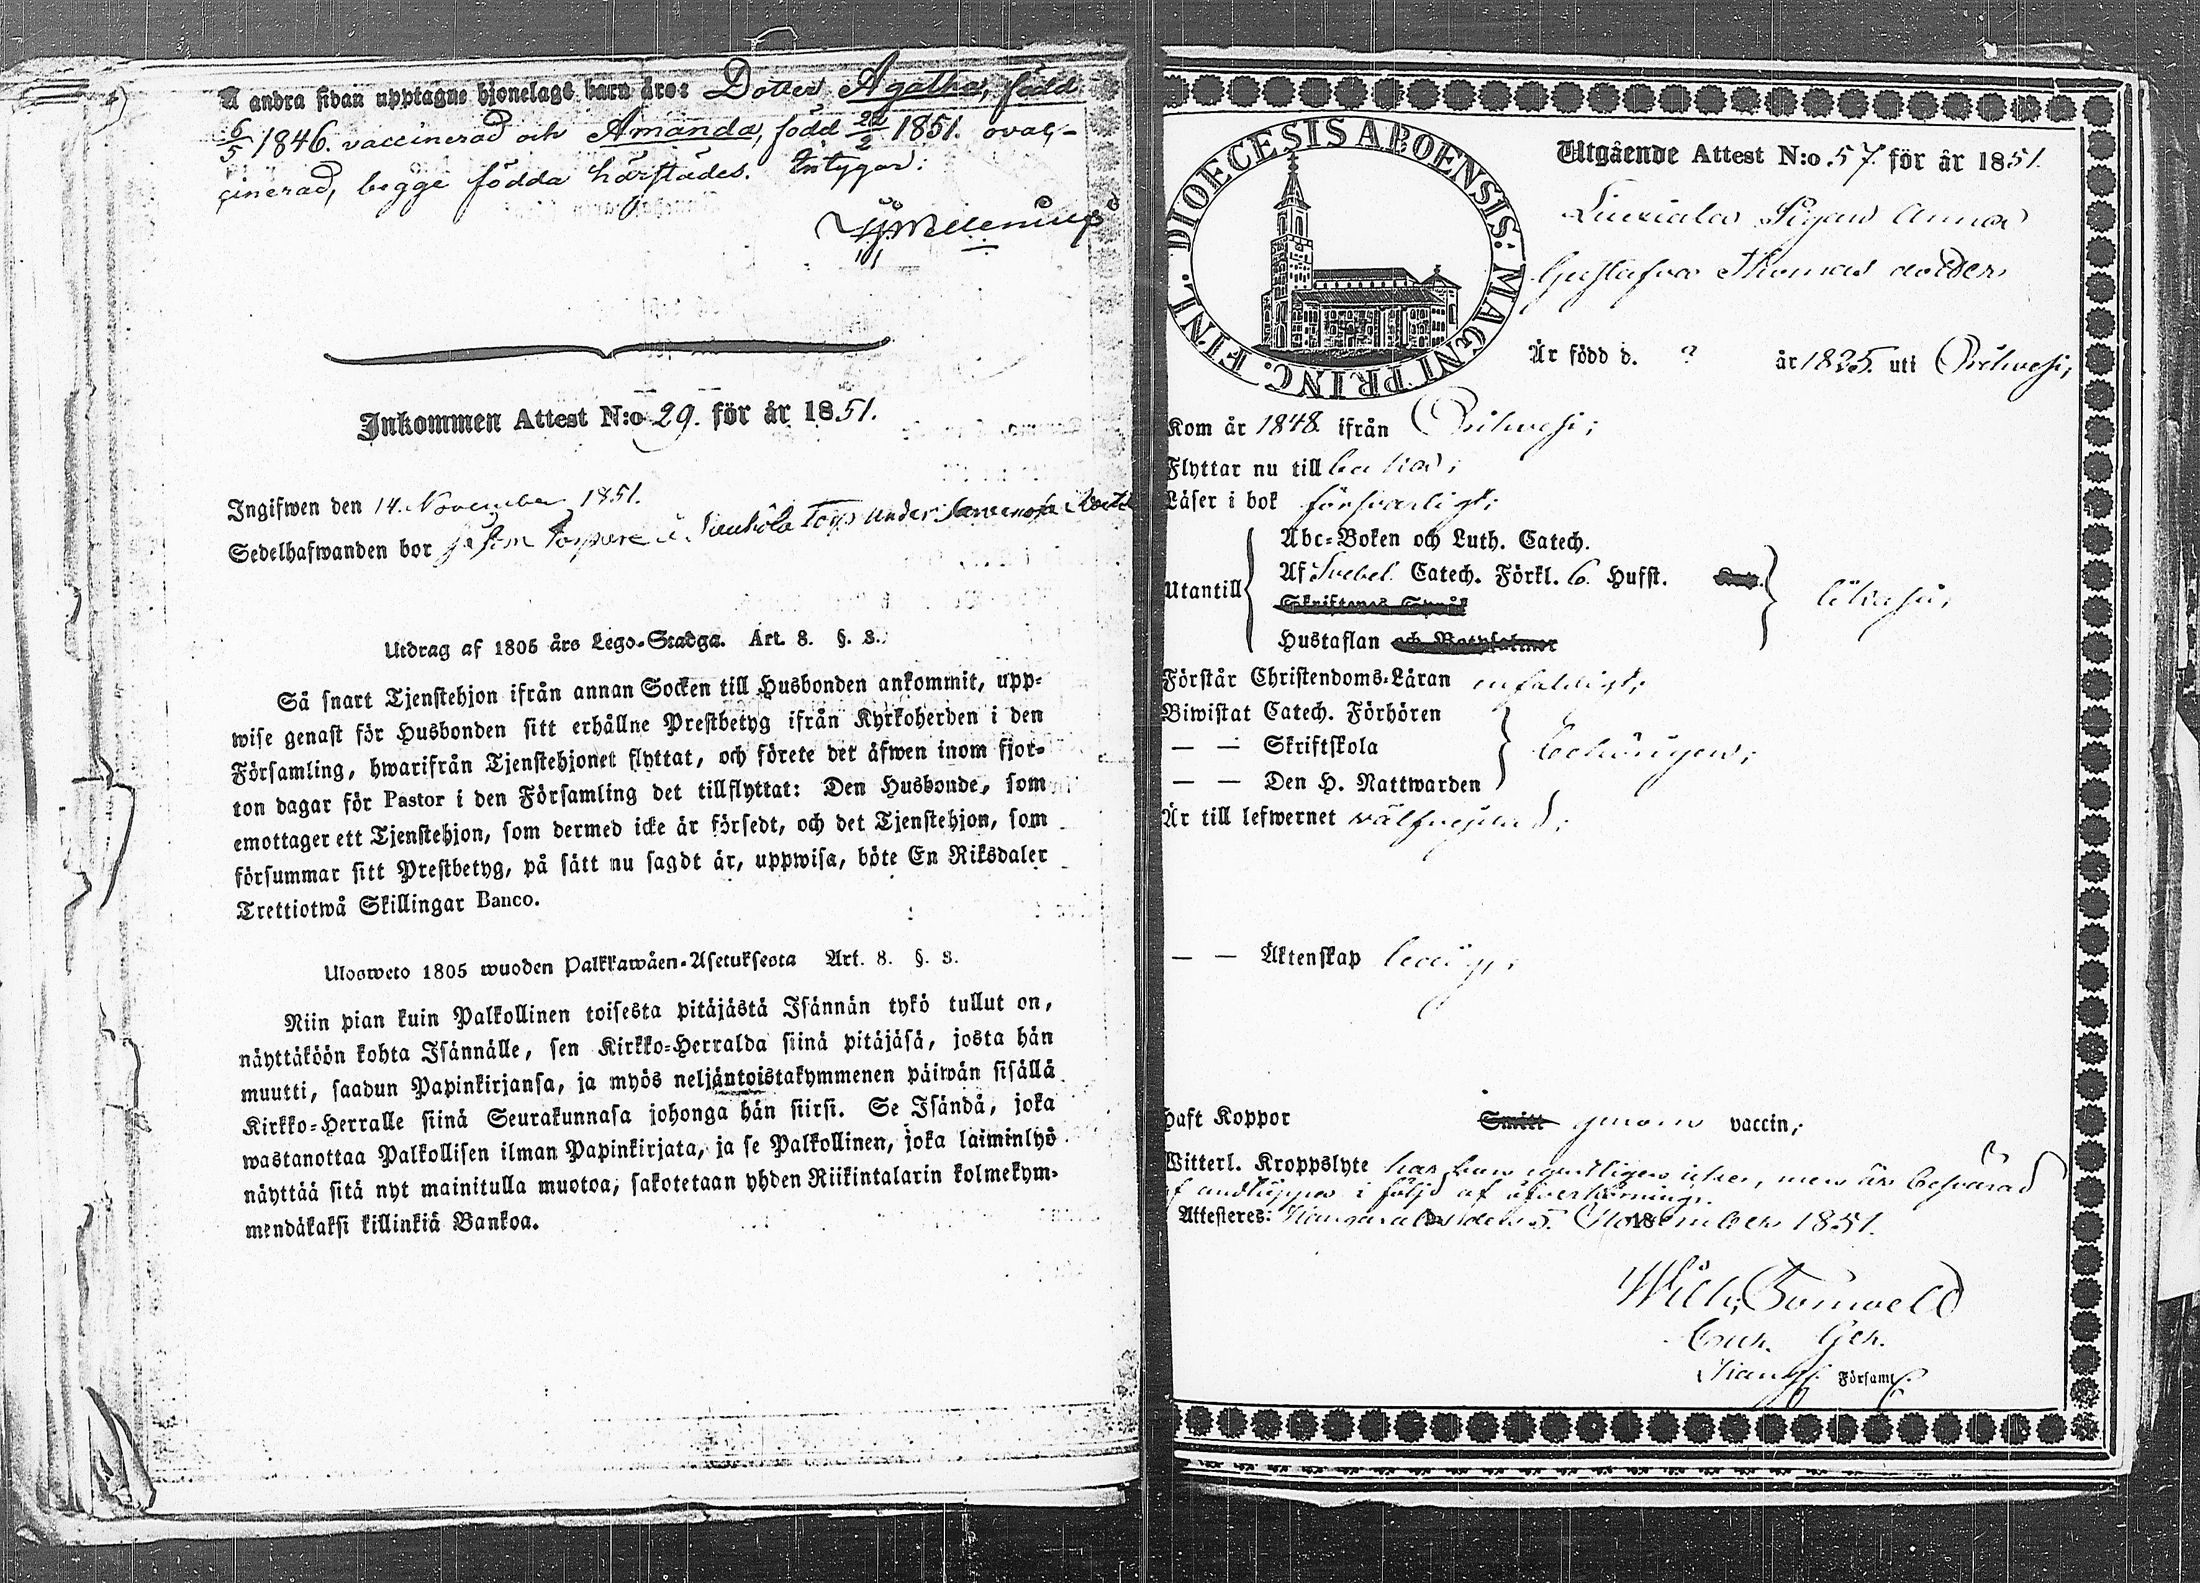 å andra sidan upptagne hjonelags barn äro: Dotter Agatha, född
6/5 1846. vaccinerad och Amanda, född 22/2 1851. ovac-
cinerad, begge födda härstädes. Intygar:
Inkommen Attest N:o 29. för år 1851.
Ingifwen den 14. November 1851.
Sedelhafwanden bor Torp under
Utdrag af 1805 års Lego-Stadga. Art. 8. §. 3.
Så snart Tjenstehjon ifrån annan Socken till Husbonden ankommit, upp-
wise genast för Husbonden sitt erhållne Prestbetyg ifrån Kyrkoherden i den
Församling, hwarifrån Tjenstehjonet flyttat, och förete det äfwen inom fjor-
ton dagar för Pastor i den Församling det tillflyttat: Den Husbonde, som
emottager ett Tjenstehjon, som dermed icke är försedt, och det Tjenstehjon, som
försummar sitt Prestbetyg, på sätt nu sagdt är, uppwisa, böte En Riksdaler
Trettiotwå Skillingar Banco.
Ulosweto 1805 wuoden Palkkawäen-Asetuksesta Art. 8. §. 3.
Niin pian kuin Palkollinen toisesta pitäjästä Isännän tykö tullut on,
näyttäköön kohta Isännälle, sen Kirkko-Herralda siinä pitäjäsä, josta hän
muutti, saadun Papinkirjansa, ja myös neljäntoistakymmenen päiwän sisällä
Kirkko-Herralle siinä Seurakunnasa johonga hän siirsi. Se Isändä, joka
wastanottaa Palkollisen ilman Papinkirjata, ja se Palkollinen, joka laiminlyö
näyttää sitä nyt mainitulla muotoa, sakotetaan yhden Riikintalarin kolmekym-
mendäkaksi killinkiä Bankoa.
DIOECESIS ABOENSIS. MAGNI PRINC. FINL.
Utgående Attest N:o 57. för år 1851.
Pigan Anna
Gustafva Thomas dotter
Är född d. ? år 1825. uti Orihvesi;
Kom år 1848. ifrån Orihvesi;
Flyttar nu till
Läser i bok försvarligt;
Abc-Boken och Luth. Catech.
Utantill Af Svebel. Catech. Förkl. 6. Hufst.
Skriftenes Språk
Hustaflan och Botpsalmer
Förstår Christendoms-Läran enfaldigt;
Biwistat Catech. Förhören
— — Skriftskola behörigen;
— — Den H. Nattwarden
Är till lefwernet välfrejdad;
— — Äktenskap ledig;
Haft Koppor Smitt genom vaccin;
Witterl. Kroppslyte har hon egentligen icke, men är besvärad
af andtäppa i följd af öfverkörning.
Attesteres: Kangasala den 5. November 1851.
Församl.